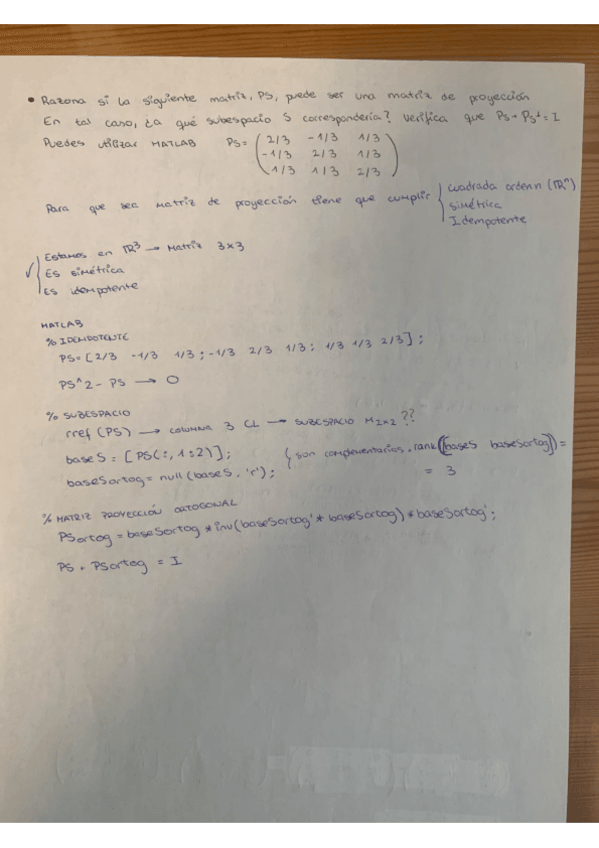 • Razona si la siguiente matriz, PS, puede ser una matriz de proyección
En tal caso, ¿a qué subespacio S correspondería? Verifica que PS + PS⊥ = I
Puedes utilizar MATLAB PS = ( 2/3 -1/3 1/3
-1/3 2/3 1/3
1/3 1/3 2/3 )
Para que sea matriz de proyección tiene que cumplir { cuadrada orden n (ℝⁿ)
simétrica
Idempotente
✓ { Estamos en ℝ³ → Matriz 3x3
Es simétrica
Es idempotente
MATLAB
% IDEMPOTENTE
PS = [2/3 -1/3 1/3 ; -1/3 2/3 1/3 ; 1/3 1/3 2/3] ;
PS^2 - PS → 0
% SUBESPACIO
rref (PS) → COLUMNA 3 CL → SUBESPACIO M2x2 ??
baseS = [PS(:, 1:2)] ;
baseSortog = null (baseS, 'r') ; { son complementarios. rank([baseS baseSortog]) =
= 3
% MATRIZ PROYECCIÓN ORTOGONAL
PSortog = baseSortog * inv(baseSortog' * baseSortog) * baseSortog' ;
PS + PSortog = I